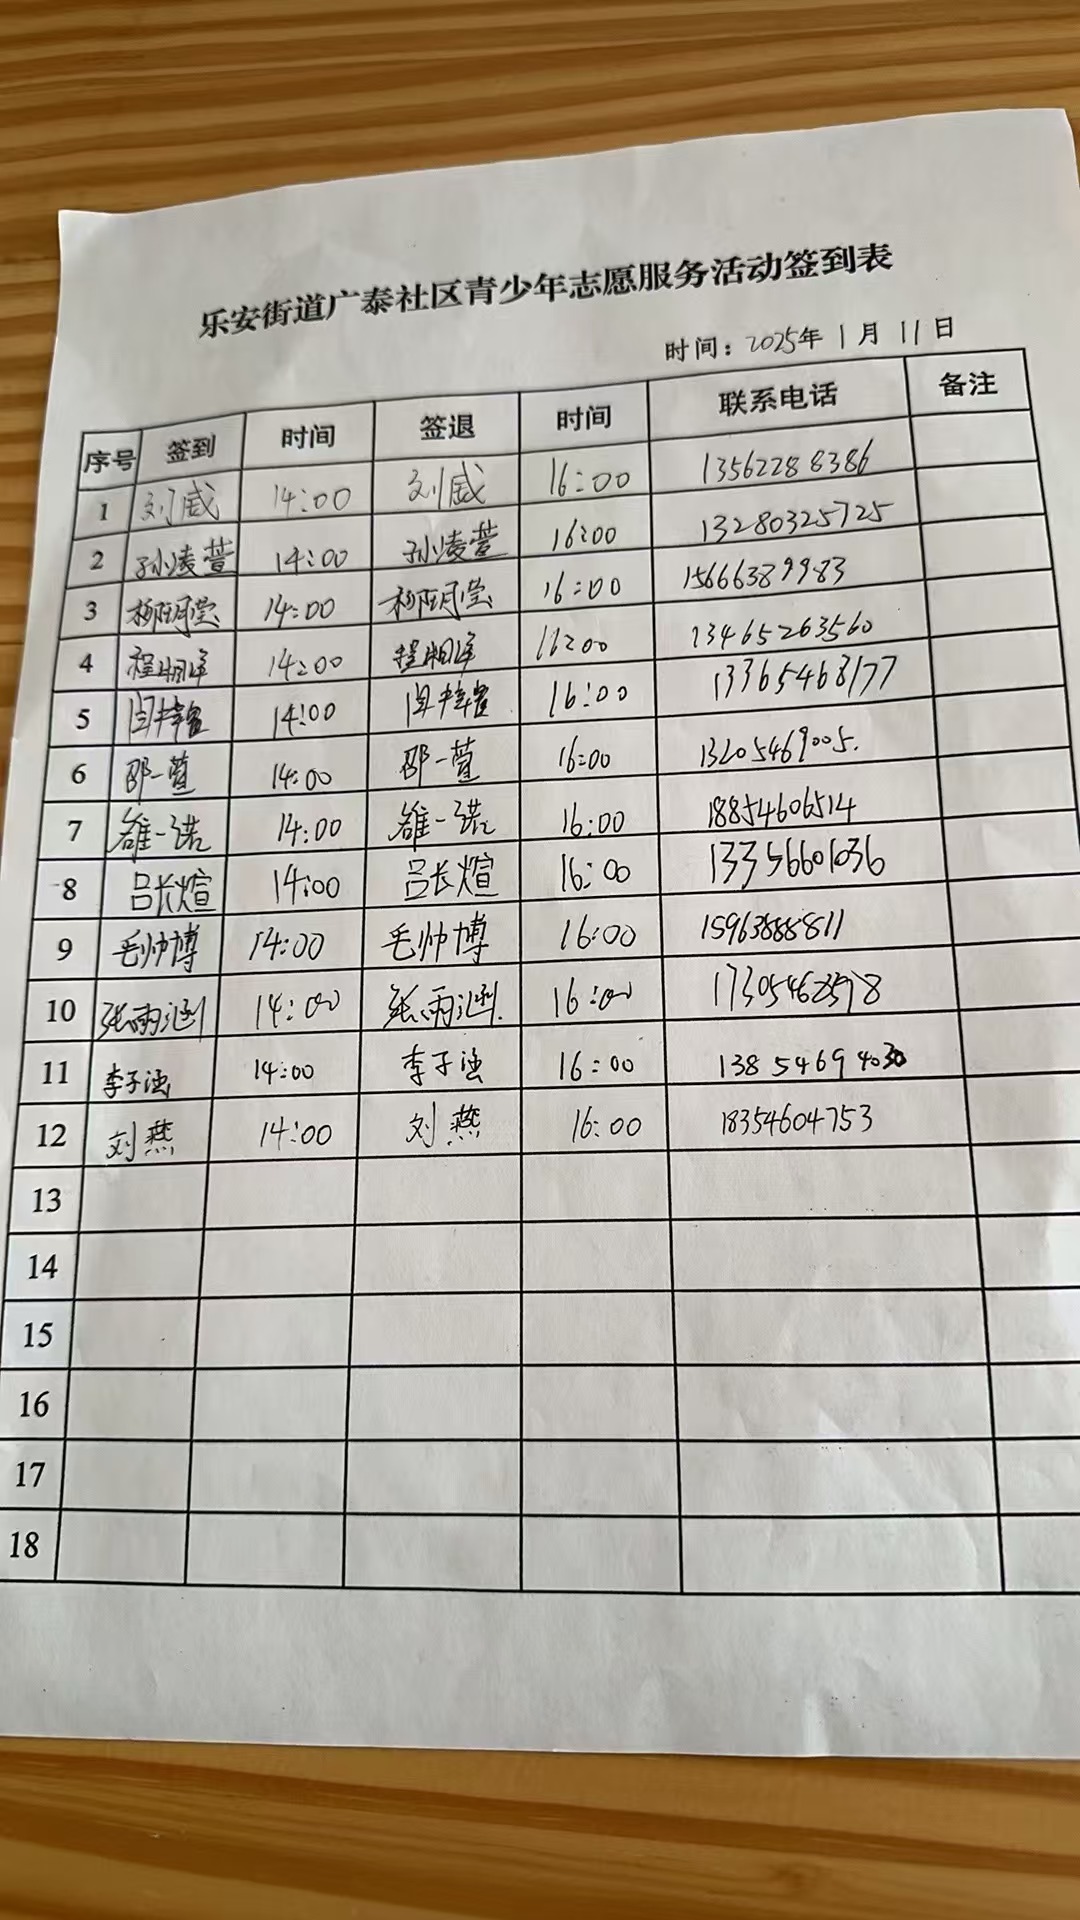 乐安街道广泰社区青少年志愿服务活动签到表
时间：2025年 1月 11日
序号 签到 时间 签退 时间 联系电话 备注
1 刘威 14:00 刘威 16:00 13562288386
2 孙凌萱 14:00 孙凌萱 16:00 13280325725
3 14:00 16:00 15666389983
4 14:00 16:00 13465263560
5 14:00 16:00 13365468177
6 邵一萱 14:00 邵一萱 16:00 13205469005.
7 雒一诺 14:00 雒一诺 16:00 18854606514
8 吕长煊 14:00 吕长煊 16:00 13356601036
9 毛帅博 14:00 毛帅博 16:00 15963888811
10 张雨涵 14:00 张雨涵 16:00
11 李子涵 14:00 李子涵 16:00
12 刘燕 14:00 刘燕 16:00 18354604753
13
14
15
16
17
18